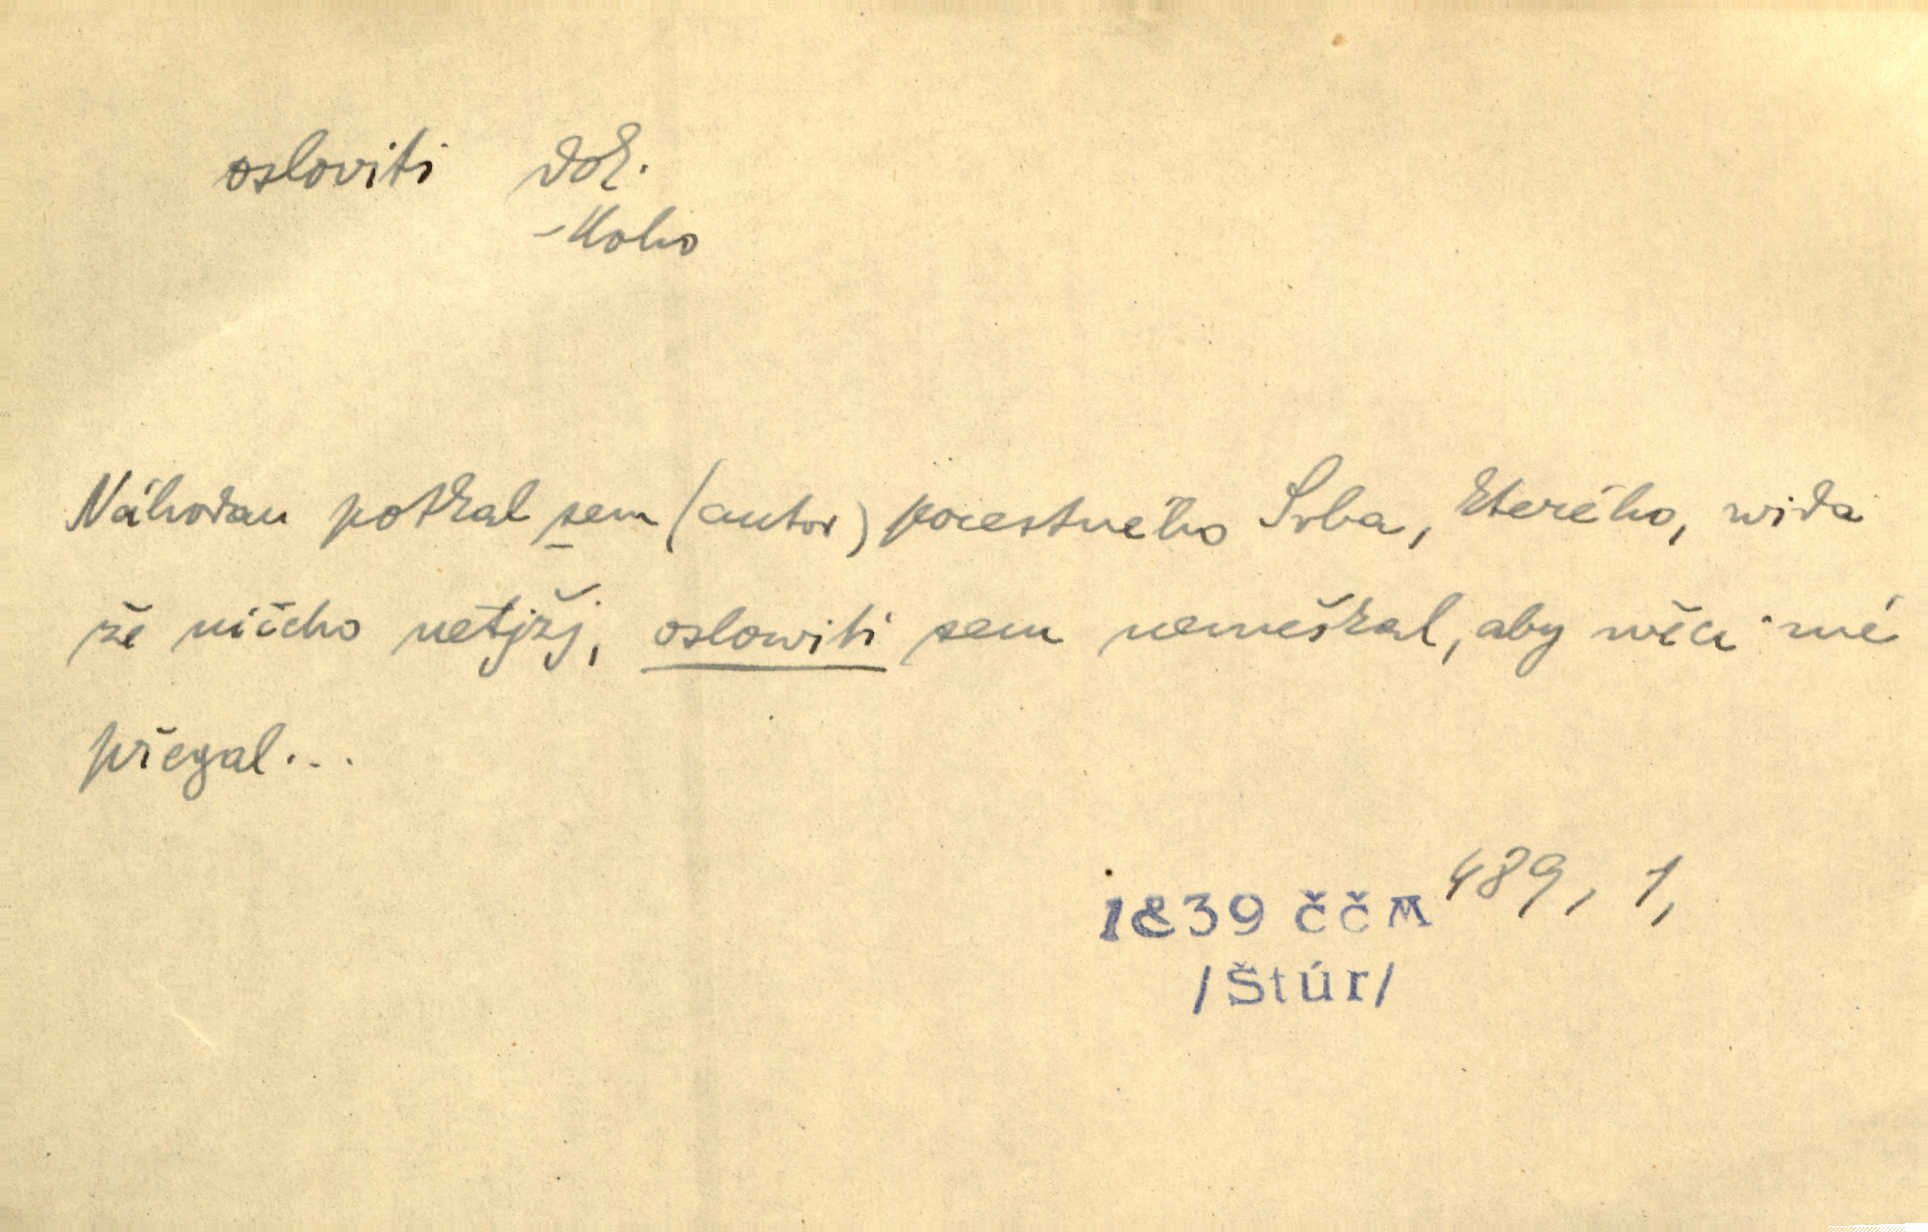 osloviti dok.
-koho
Náhodau potkal sem (autor) pocestného Srba, kterého, wida
že ničeho netjžj, oslowiti sem nemeškal, aby wěci mé
přegal...
1839 ČČM 489, 1,
/Štúr/